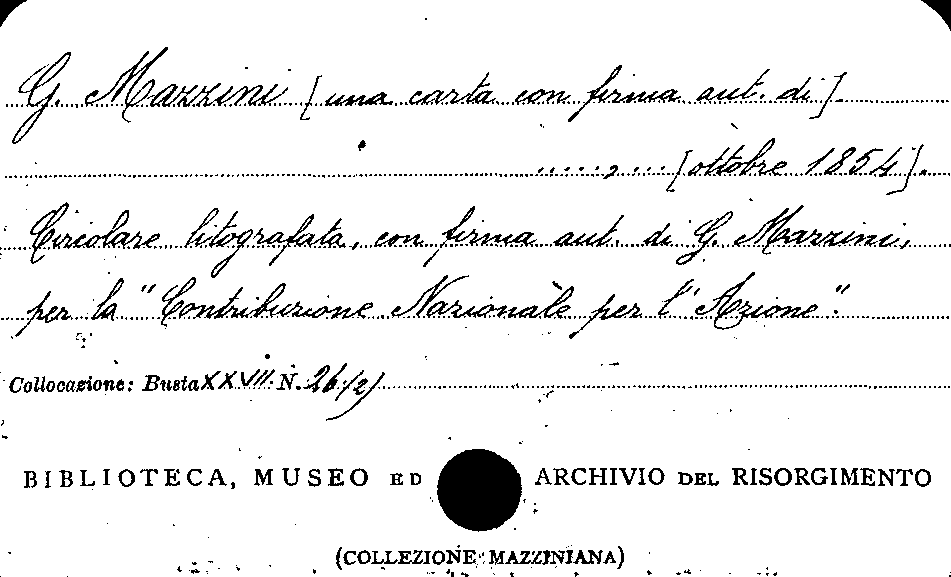 G. Mazzini [una carta con firma aut. di].
....., ... [ottobre 1854].
Circolare litografata, con firma aut. di G. Mazzini,
per la "Contribuzione Nazionale per l'Azione".
Collocazione: Busta XXVII N. 26/2/
BIBLIOTECA, MUSEO ED ARCHIVIO DEL RISORGIMENTO
(COLLEZIONE MAZZINIANA)